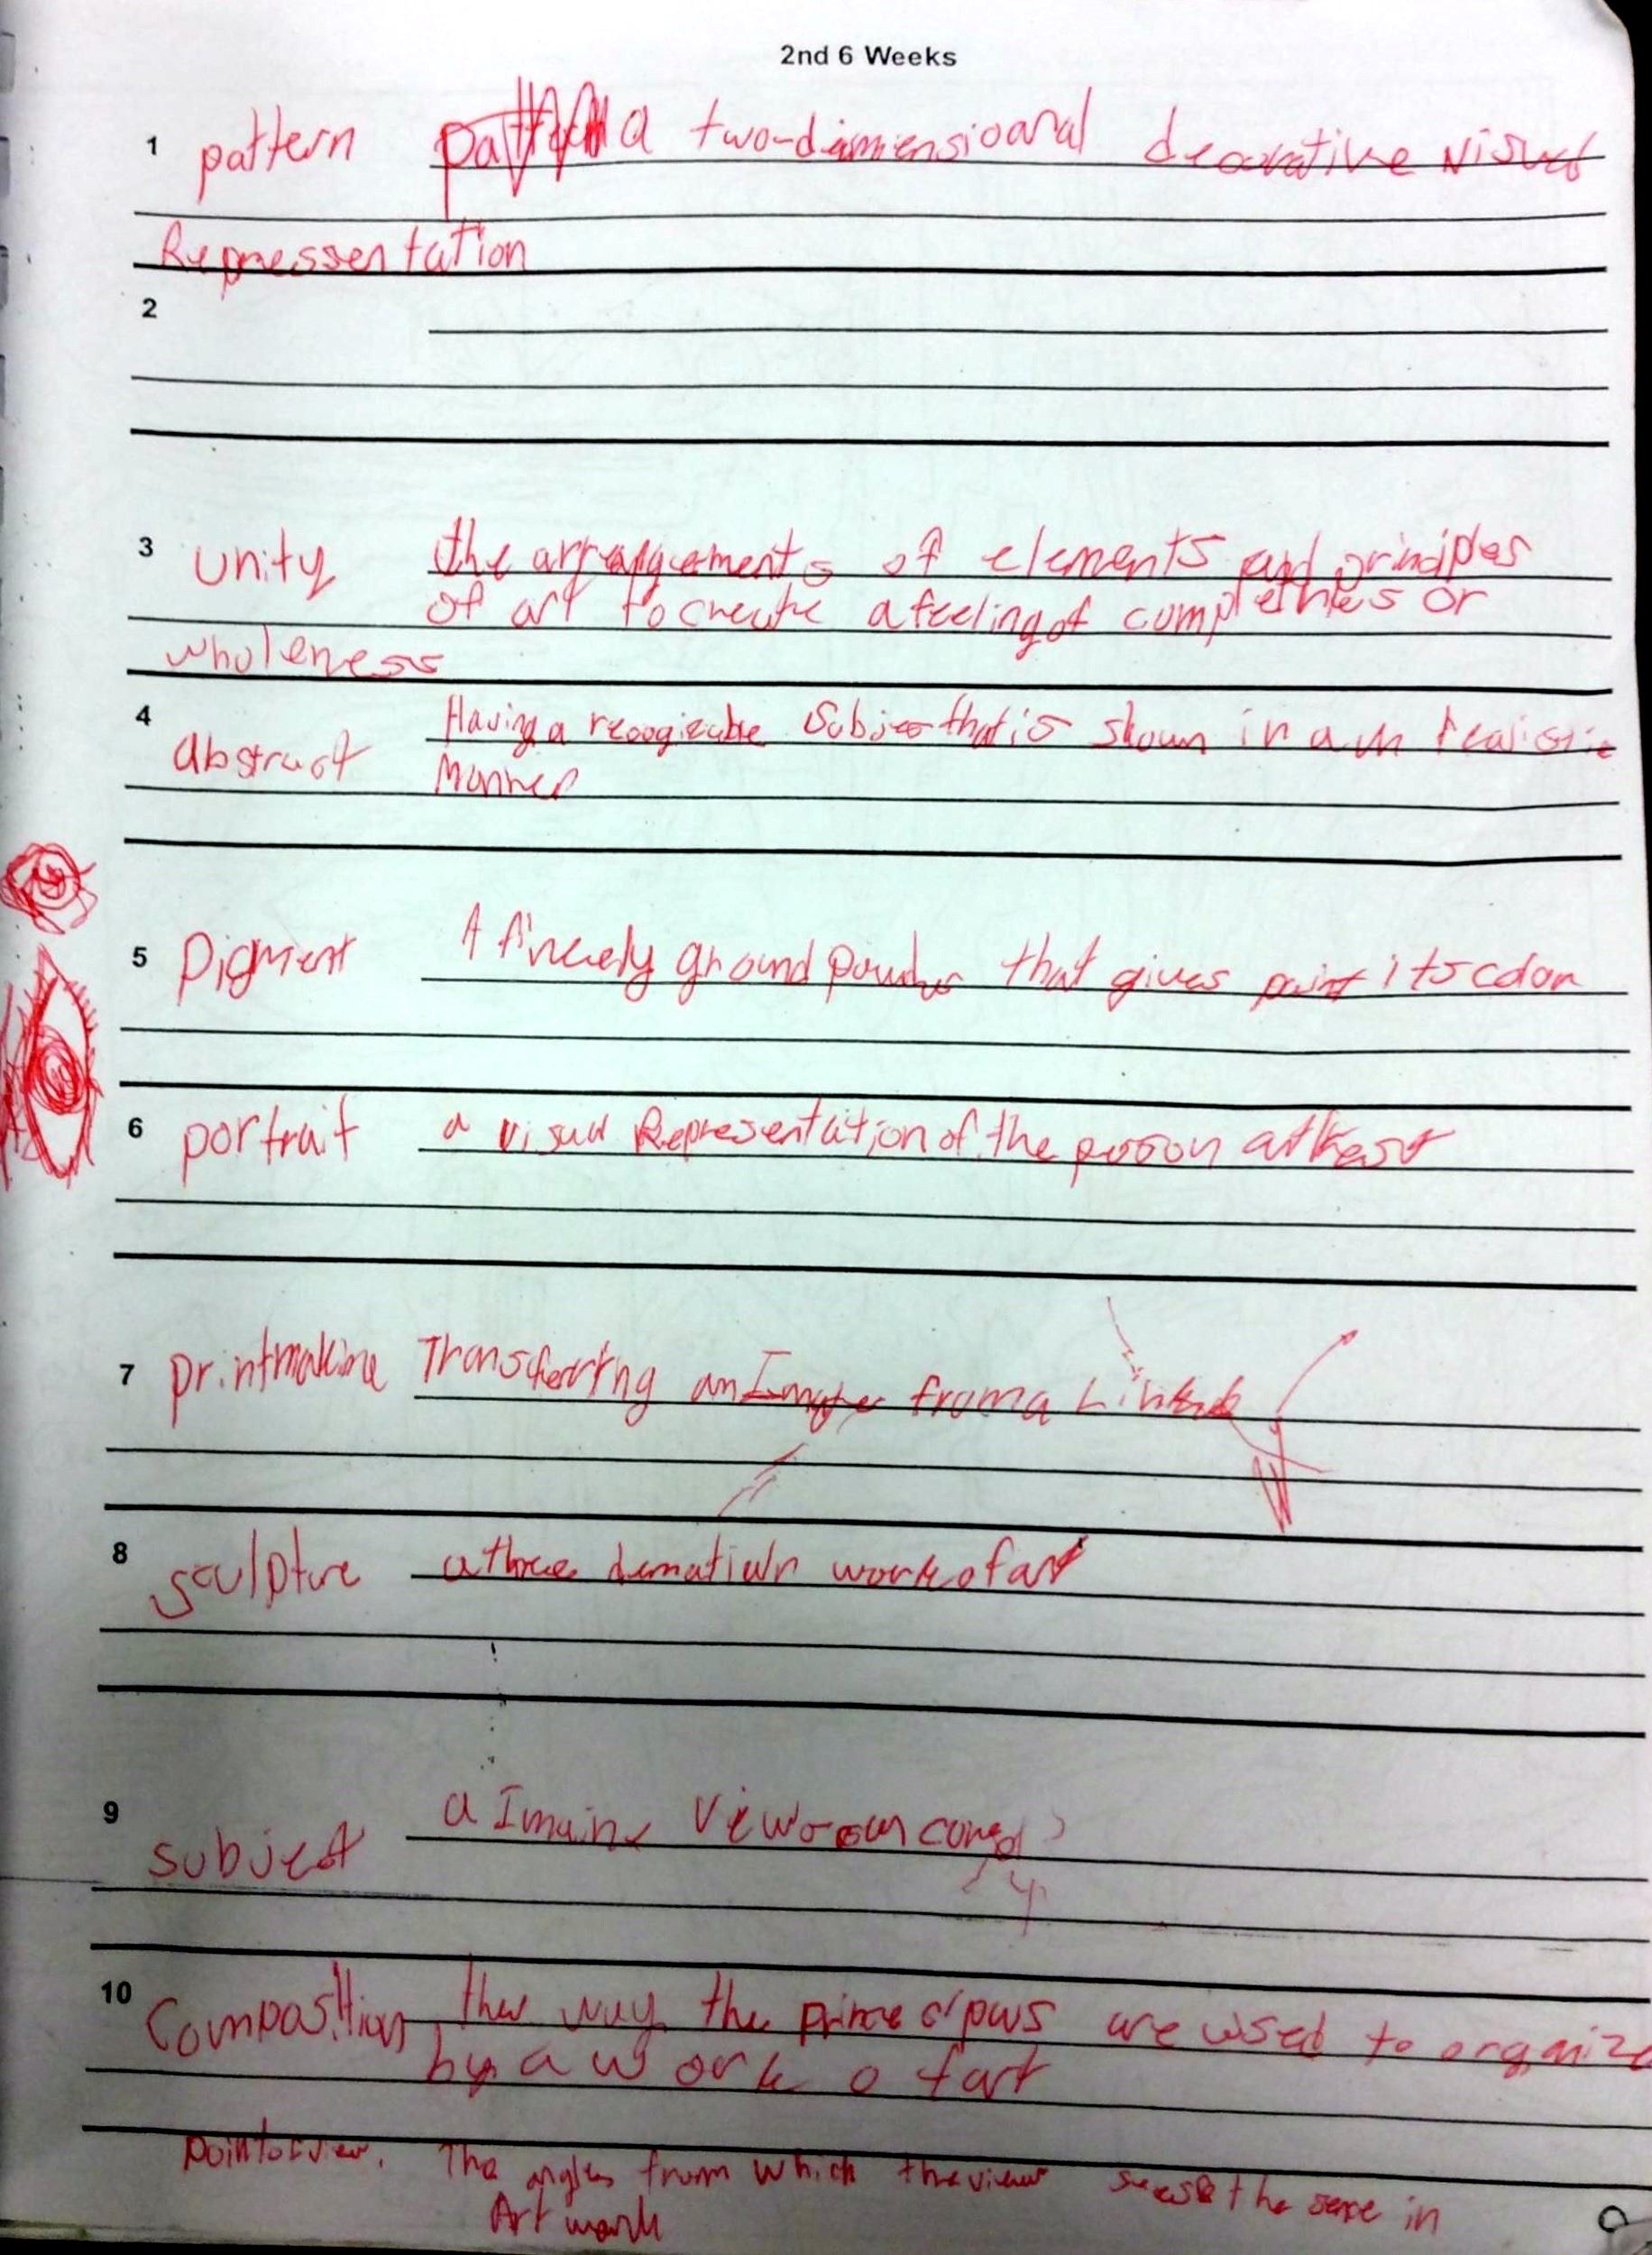 2nd 6 Weeks
1 pattern a two-dimiensioanal decorative visual
Repressentation
2
3 unity the arrangements of elements and prinicples
of art to create a feeling of completnes or
wholeness
4 abstract Having a that is shown in a un realistic
manner
5 Pigment A finely ground powder that gives paint its color
6 portrait a visual Representation of the person
7 printmaking Transferring an Image from a
8 sculpture a three work of art
9 subject a View
10 Composition the way the are used to organize
by a work of art
point of view. The angles from which the viewr the in
Art work